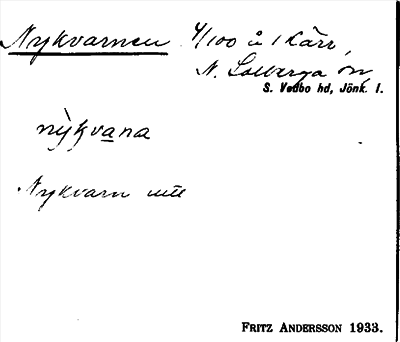 Nykvarnen 4/100 å 1 Kärr,
N. Solberga sn,
S. Vedbo hd, Jönk. l.
nỳkvana
Nykvarn utt
FRITZ ANDERSSON 1933.